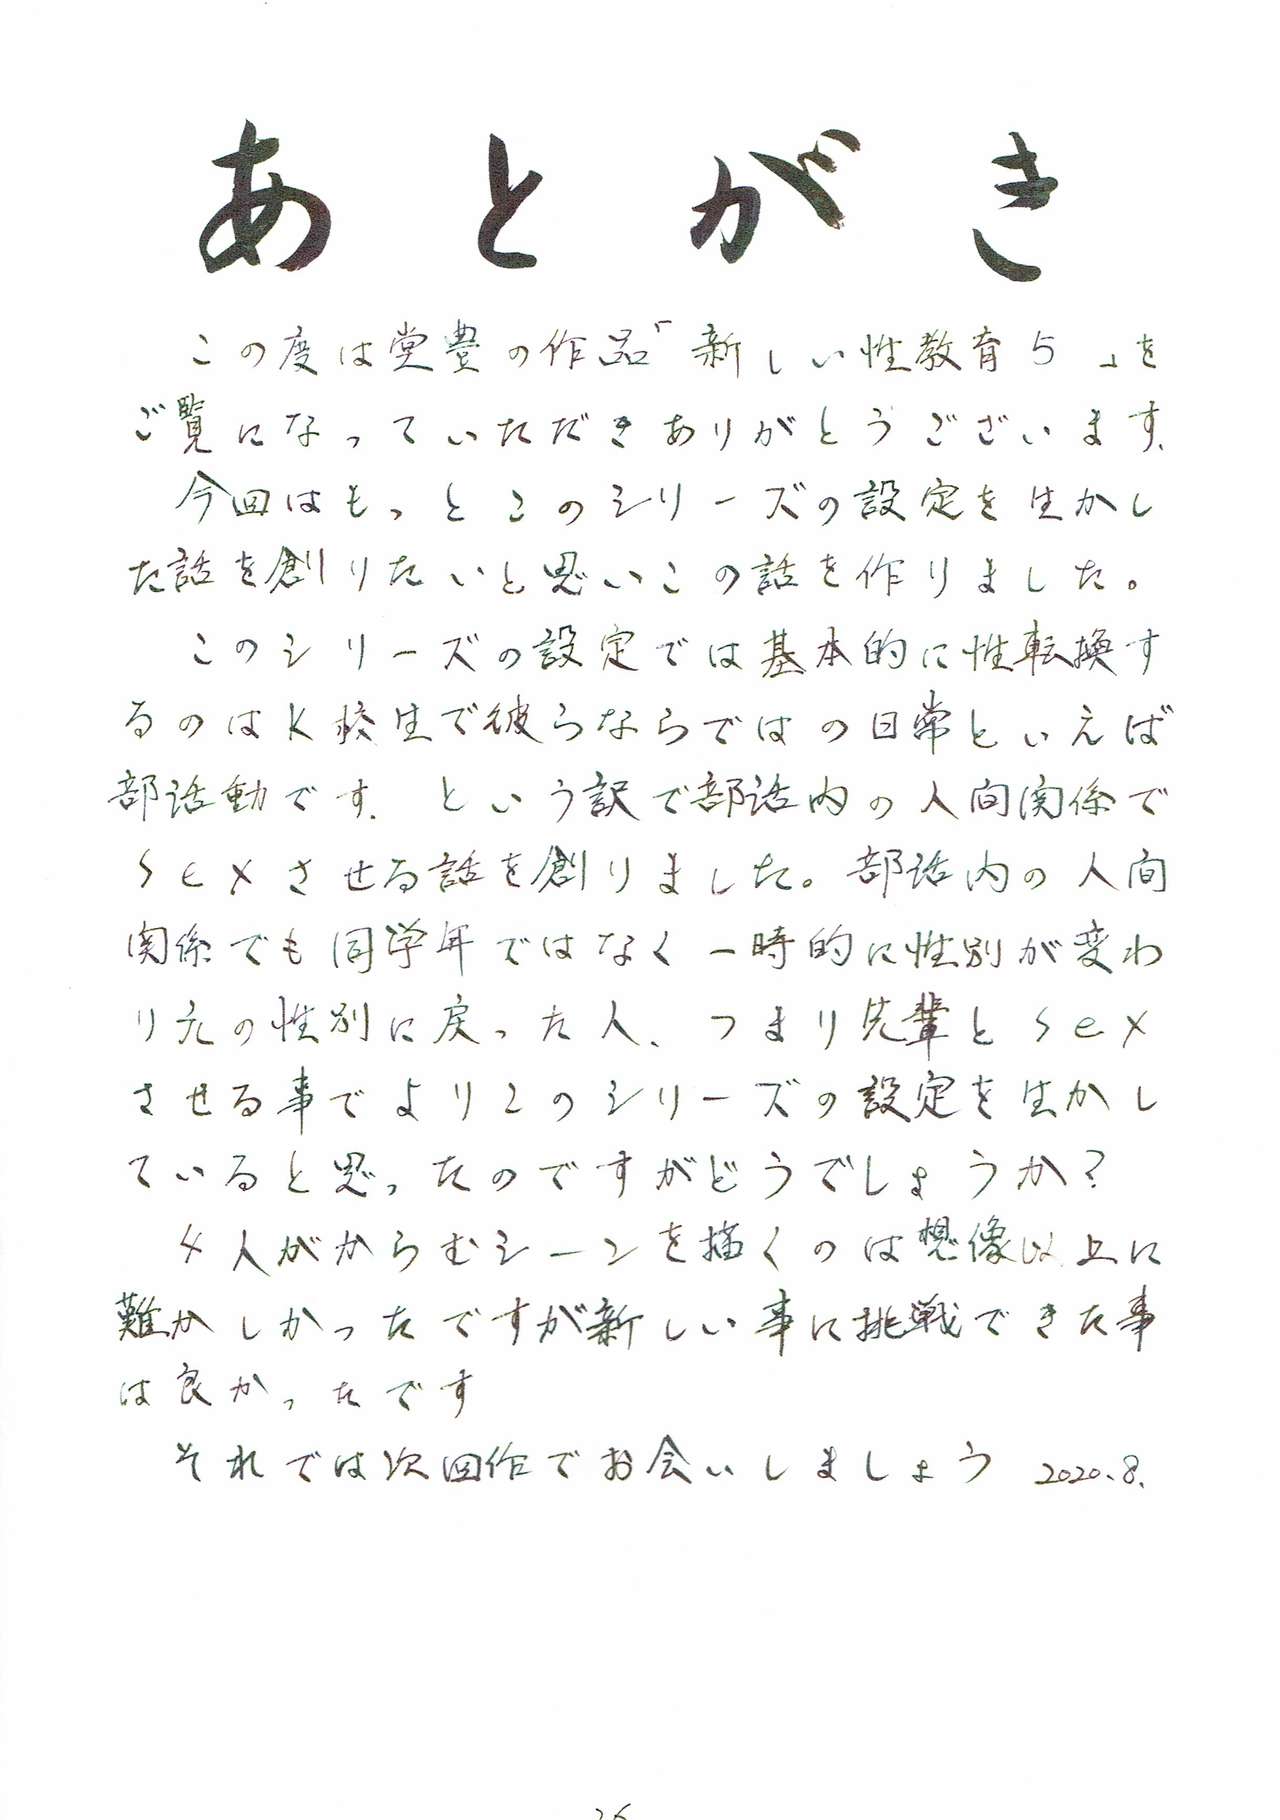 あとがき
この度は堂豊の作品「新しい性教育5」を
ご覧になっていただきありがとうございます.
今回はもっとこのシリーズの設定を生かし
た話を創りたいと思いこの話を作りました。
このシリーズの設定では基本的に性転換す
るのはK校生で彼らならではの日常といえば
部活動です. という訳で部活内の人間関係で
sexさせる話を創りました。部活内の人間
関係でも同学年ではなく一時的に性別が変わ
り元の性別に戻った人、つまり先輩とsex
させる事でよりこのシリーズの設定を生かし
ていると思ったのですがどうでしょうか?
4人がからむシーンを描くのは想像以上に
難かしかったですが新しい事に挑戦できた事
は良かったです
それでは次回作でお会いしましょう 2020.8.
26